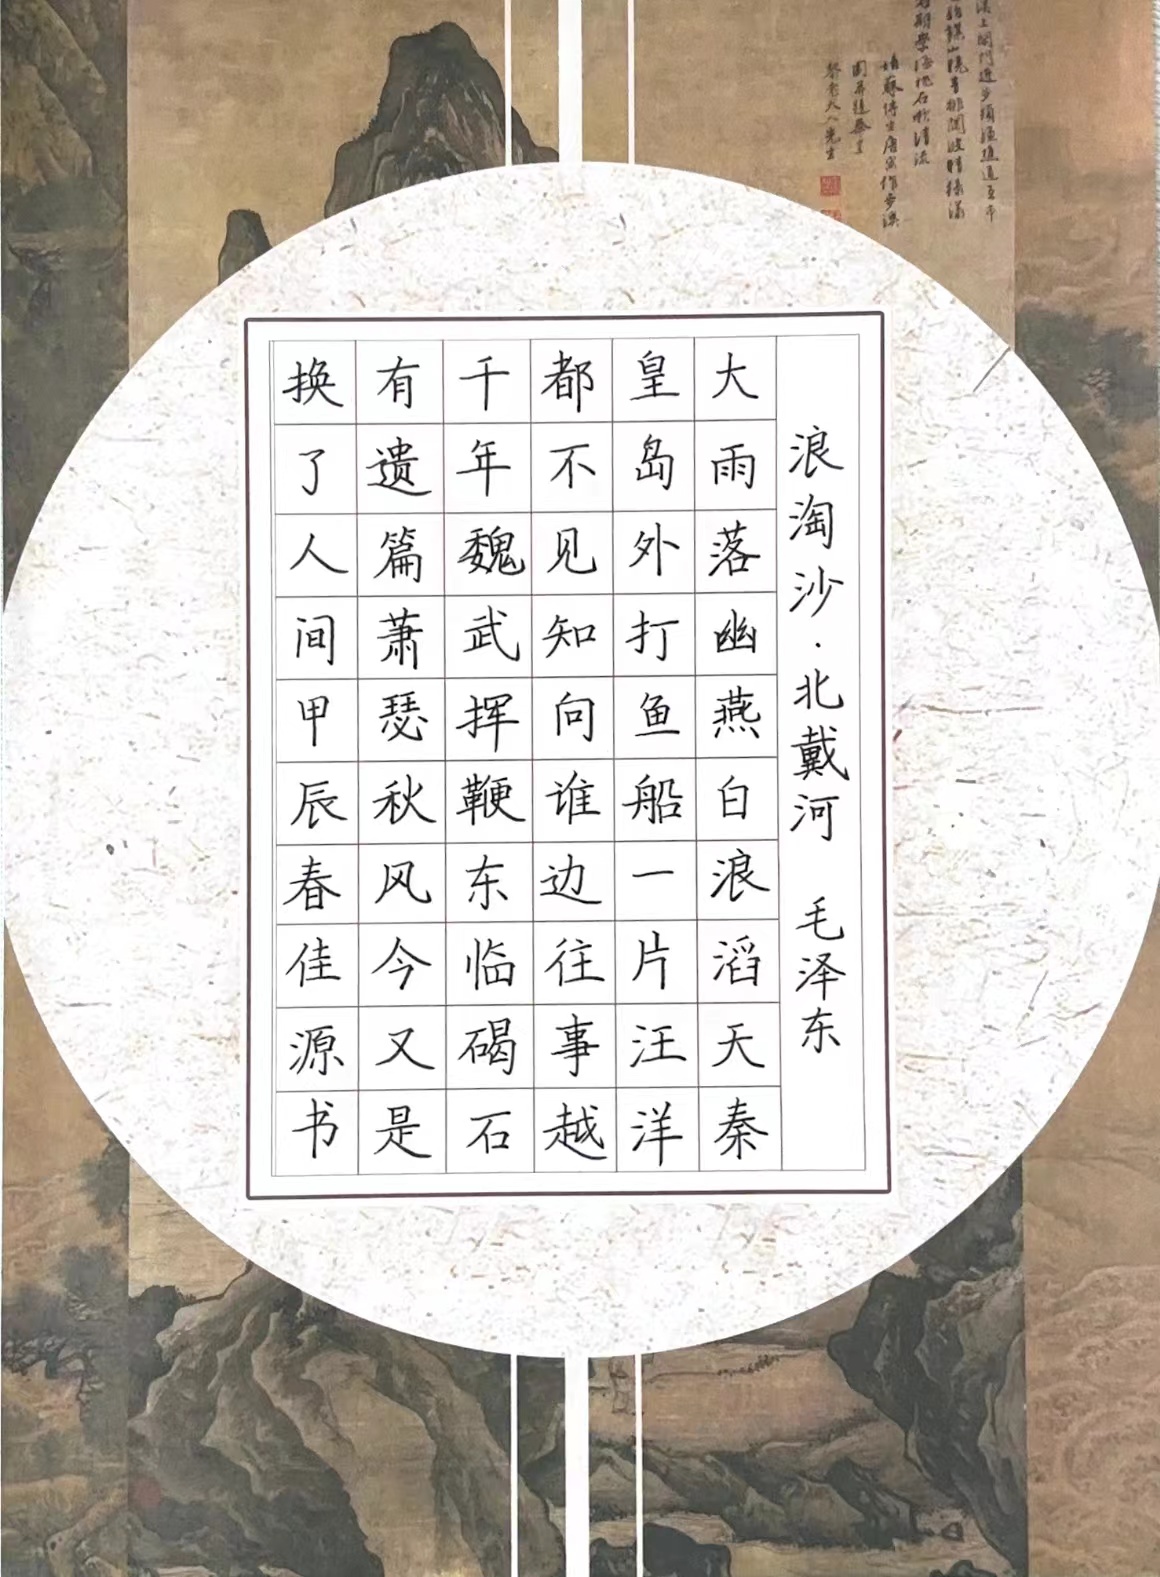 浪淘沙·北戴河 毛泽东
大雨落幽燕白浪滔天秦
皇岛外打鱼船一片汪洋
都不见知向谁边往事越
千年魏武挥鞭东临碣石
有遗篇萧瑟秋风今又是
换了人间甲辰春佳源书